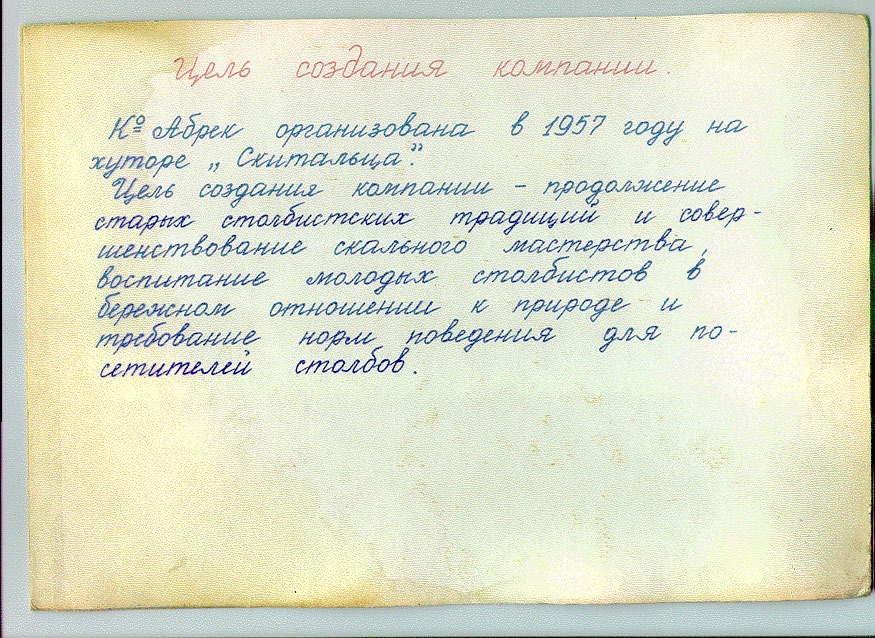 Цель создания компании.
Кº Абрек организована в 1957 году на
хуторе „Скитальца".
Цель создания компании – продолжение
старых столбистских традиций и совер-
шенствование скального мастерства,
воспитание молодых столбистов в
бережном отношении к природе и
требование норм поведения для по-
сетителей столбов.